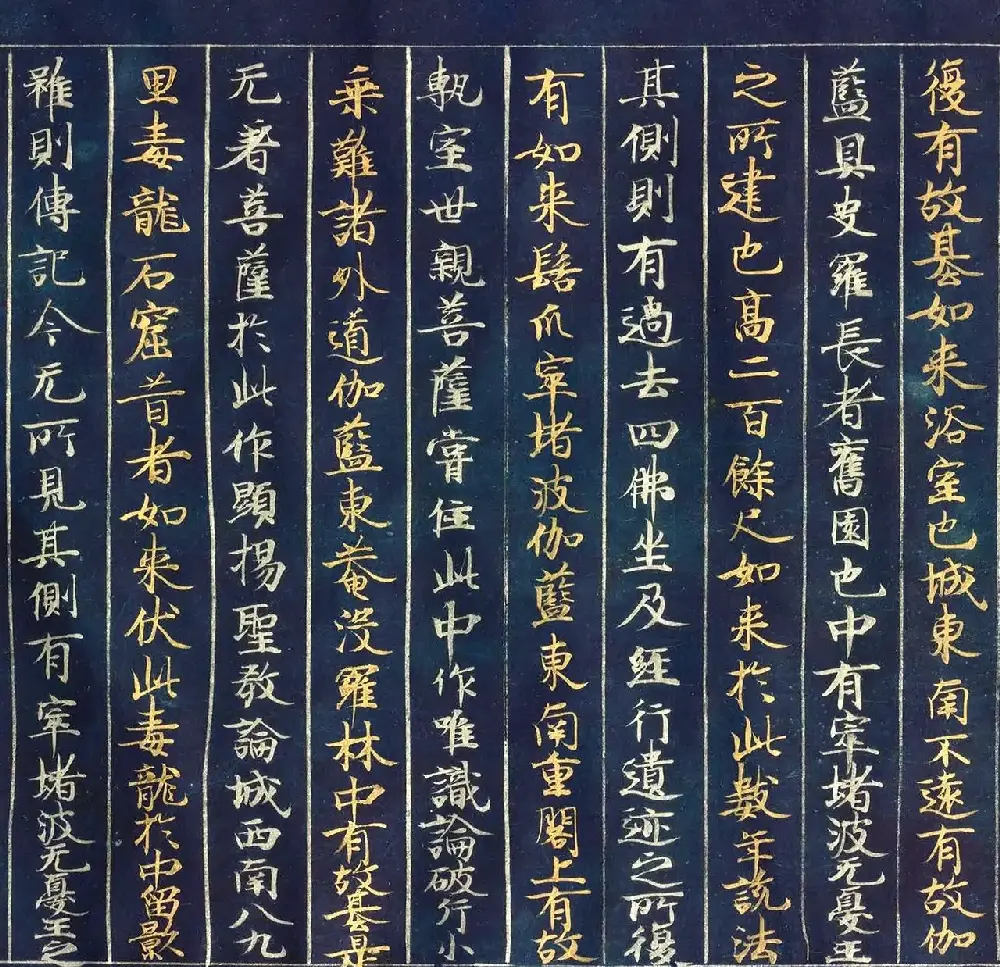 復有故基如来浴室也城東南不遠有故伽
藍具史羅長者舊園也中有窣堵波无憂王
之所建也髙二百餘尺如来於此數年說法
其側則有過去四佛坐及経行遺迹之所復
有如来髮爪窣堵波伽藍東南重閣上有故
甎室世親菩薩甞住此中作唯識論破斥小
乗難諸外道伽藍東菴没羅林中有故基是
无著菩薩於此作顯揚聖教論城西南八九
里毒龍石窟昔者如来伏此毒龍於中留影
雖則傳記今无所見其側有窣堵波无憂王之